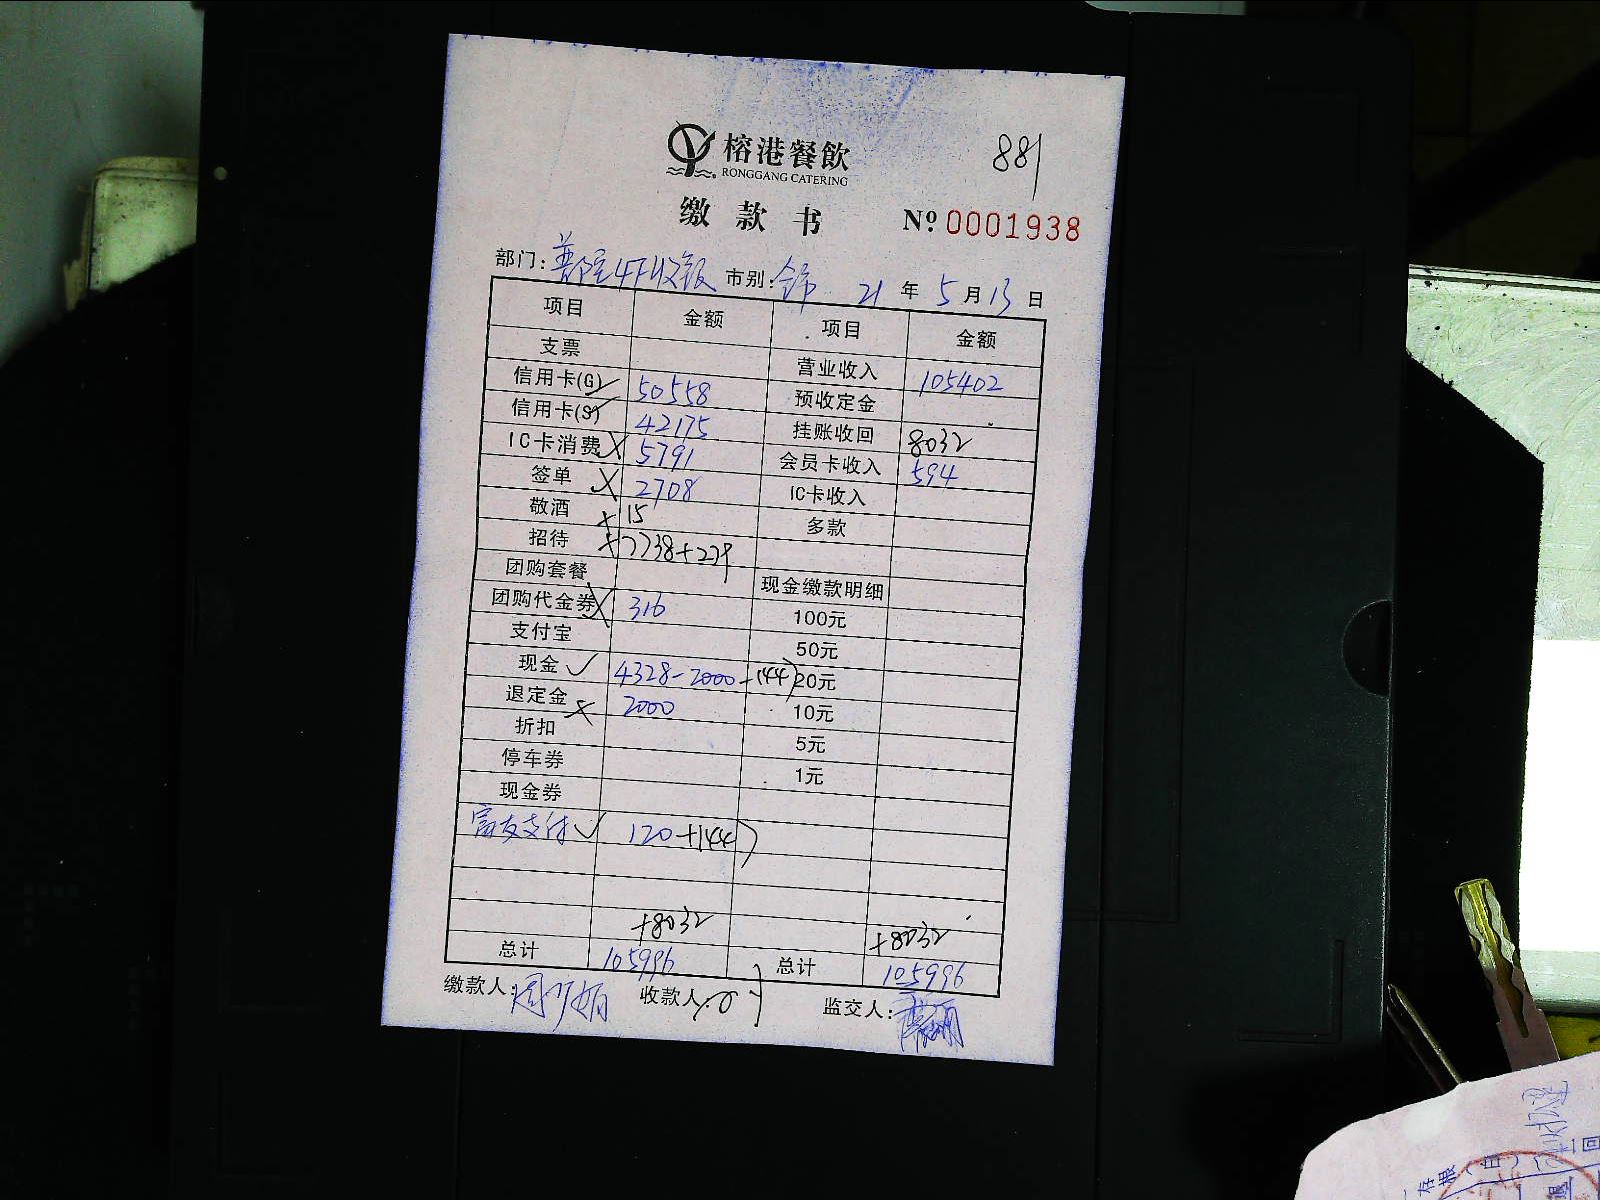 榕港餐飲
RONGGANG CATERING
881
缴款书 Nº 0001938
部门: 4F收银 市别: 全市 21年5月13日
项目 金额 项目 金额
支票 营业收入 105402
信用卡(G) 50558 预收定金
信用卡(S) 42175 挂账收回 8032
IC卡消费 5791 会员卡收入 594
签单 2708 IC卡收入
敬酒 15 多款
招待 7738+279
团购套餐 现金缴款明细
团购代金券 316 100元
支付宝 50元
现金 4328-2000-144) 20元
退定金 2000 10元
折扣 5元
停车券 1元
现金券
富友支付 120+144)
+8032 +8032
总计 105996 总计 105996
缴款人: 收款人: 监交人:
存根